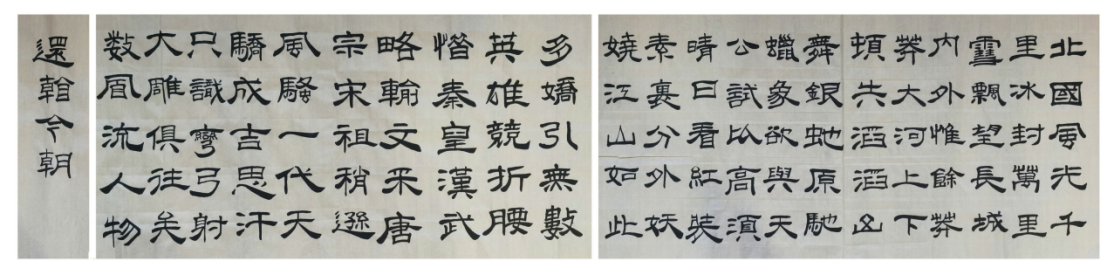 北國風光千
里冰封萬里
雪飄望長城
内外惟餘莽
莽大河上下
頓失滔滔山
舞銀蛇原馳
蠟象欲與天
公試比高須
晴日看紅裝
素裹分外妖
嬈江山如此
多嬌引無數
英雄競折腰
惜秦皇漢武
略輸文采唐
宗宋祖稍遜
風騷一代天
驕成吉思汗
只識彎弓射
大雕俱往矣
数風流人物
還看今朝